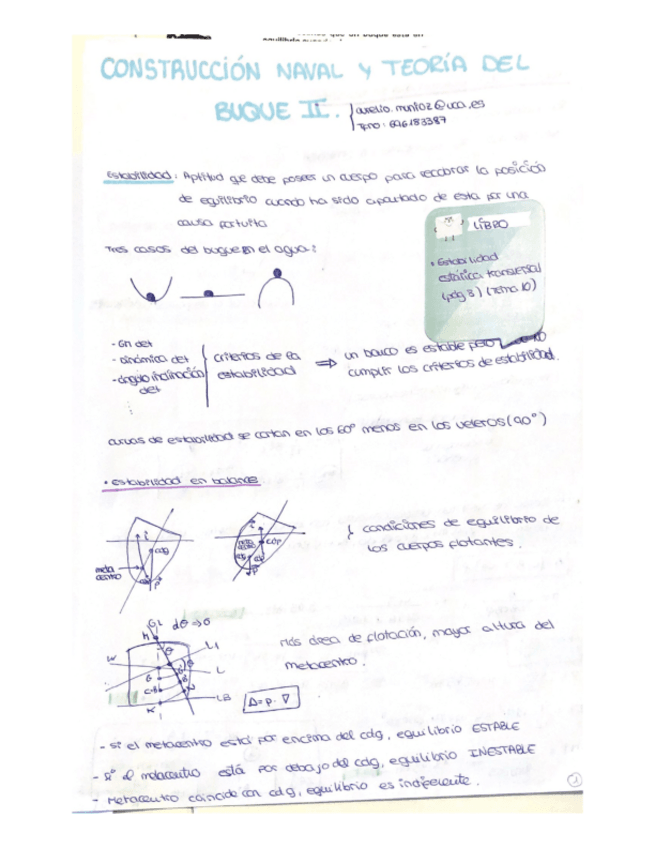 CONSTRUCCIÓN NAVAL Y TEORÍA DEL
BUQUE II.
aurelio.munoz@uca.es
Tfno: 696183387
Estabilidad: Aptitud que debe poseer un cuerpo para recobrar la posición
de equilibrio cuando ha sido apartado de esta por una
causa fortuita
LIBRO
• Estabilidad
estática transversal
(pág 3) (Tema 10)
Tres casos del buque en el agua:
- GM det
- dinámica det
- ángulo inclinación
det
criterios de la
estabilidad
⇒ un barco es estable pero
cumplir los criterios de estabilidad.
curvas de estabilidad se cortan en los 60° menos en los veleros (90°)
• Estabilidad en balance
meta
centro
cdg
} condiciones de equilibrio de
los cuerpos flotantes.
dθ → θ
L1
W
L
G
C.B
LB
K
Δ = ρ · ∇
Más área de flotación, mayor altura del
metacentro.
- Si el metacentro está por encima del cdg, equilibrio ESTABLE
- Si el metacentro está por debajo del cdg, equilibrio INESTABLE
- Metacentro coincide con cdg, equilibrio es indiferente.
1